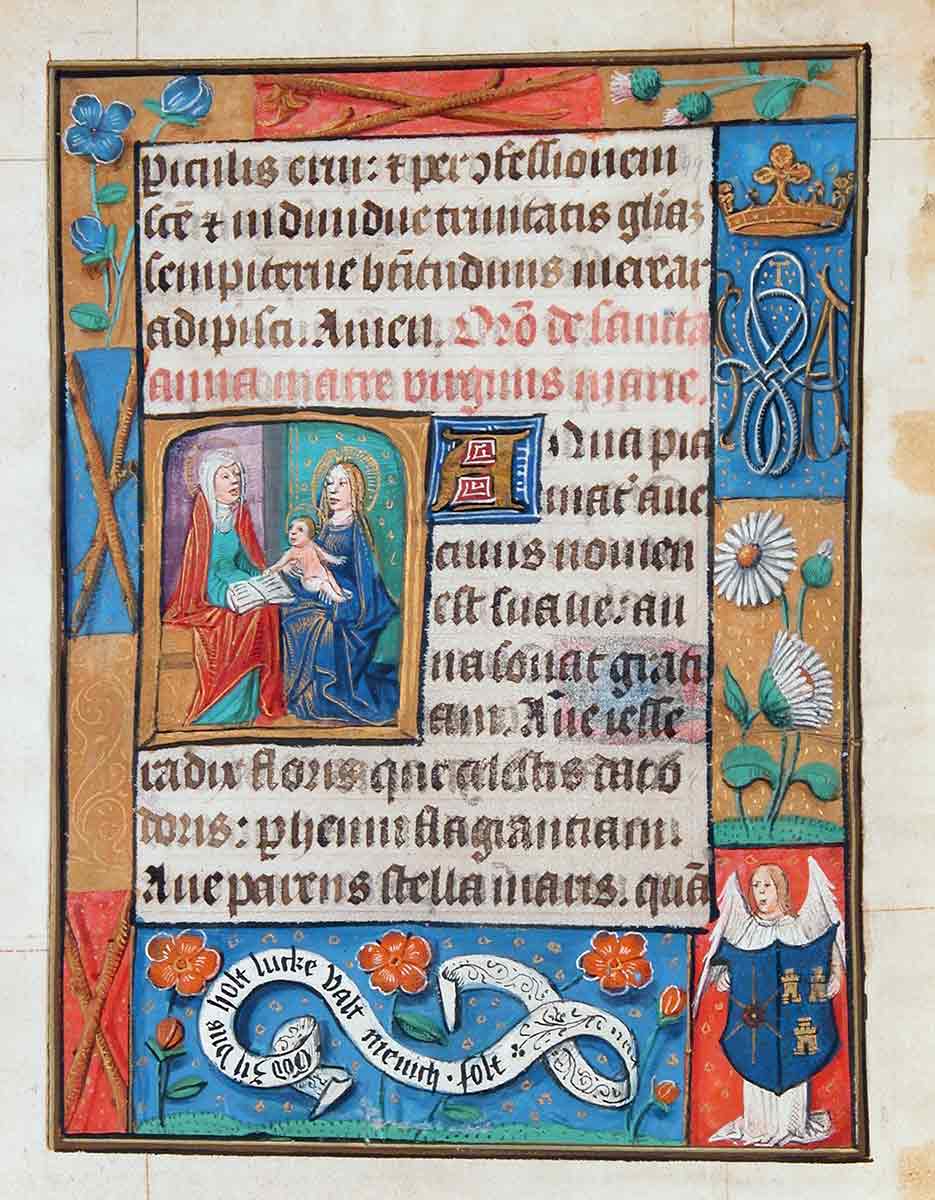 ꝑiculis erui: ⁊ per ꝯfessionem
scē ⁊ indiuidue trinitatis gl̄iaꝫ
sempiterne bt̄itudinis merear
adipisci. Amen. Orō de sancta
anna matre virginis marie.
ANna pia
mat᷑ aue
cuius nomen
est suaue: an
na sonat grati
am. Aue iesse
radix floris que celestis dat o
doris: ꝑhenni flagranciam.
Aue parens stella maris. quā
God zu vns holt lucke valt menich · folt